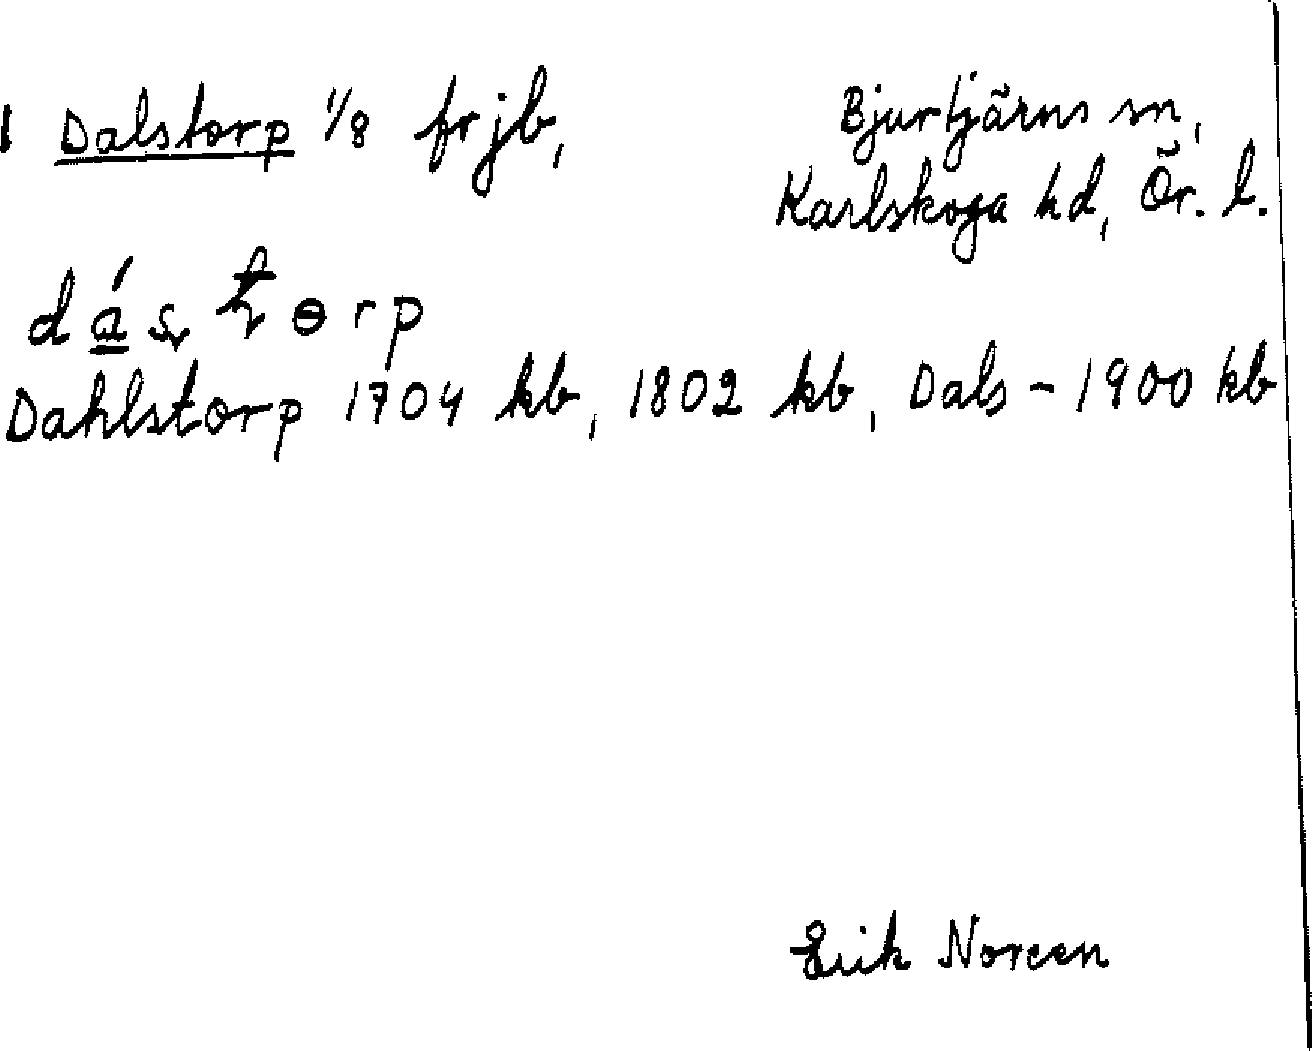 1 Dalstorp 1/8 frjb,
Bjurtjärns sn,
Karlskoga hd, Ör. l.
Dahlstorp 1704 kb, 1802 kb, Dals - 1900 kb
Erik Noreen